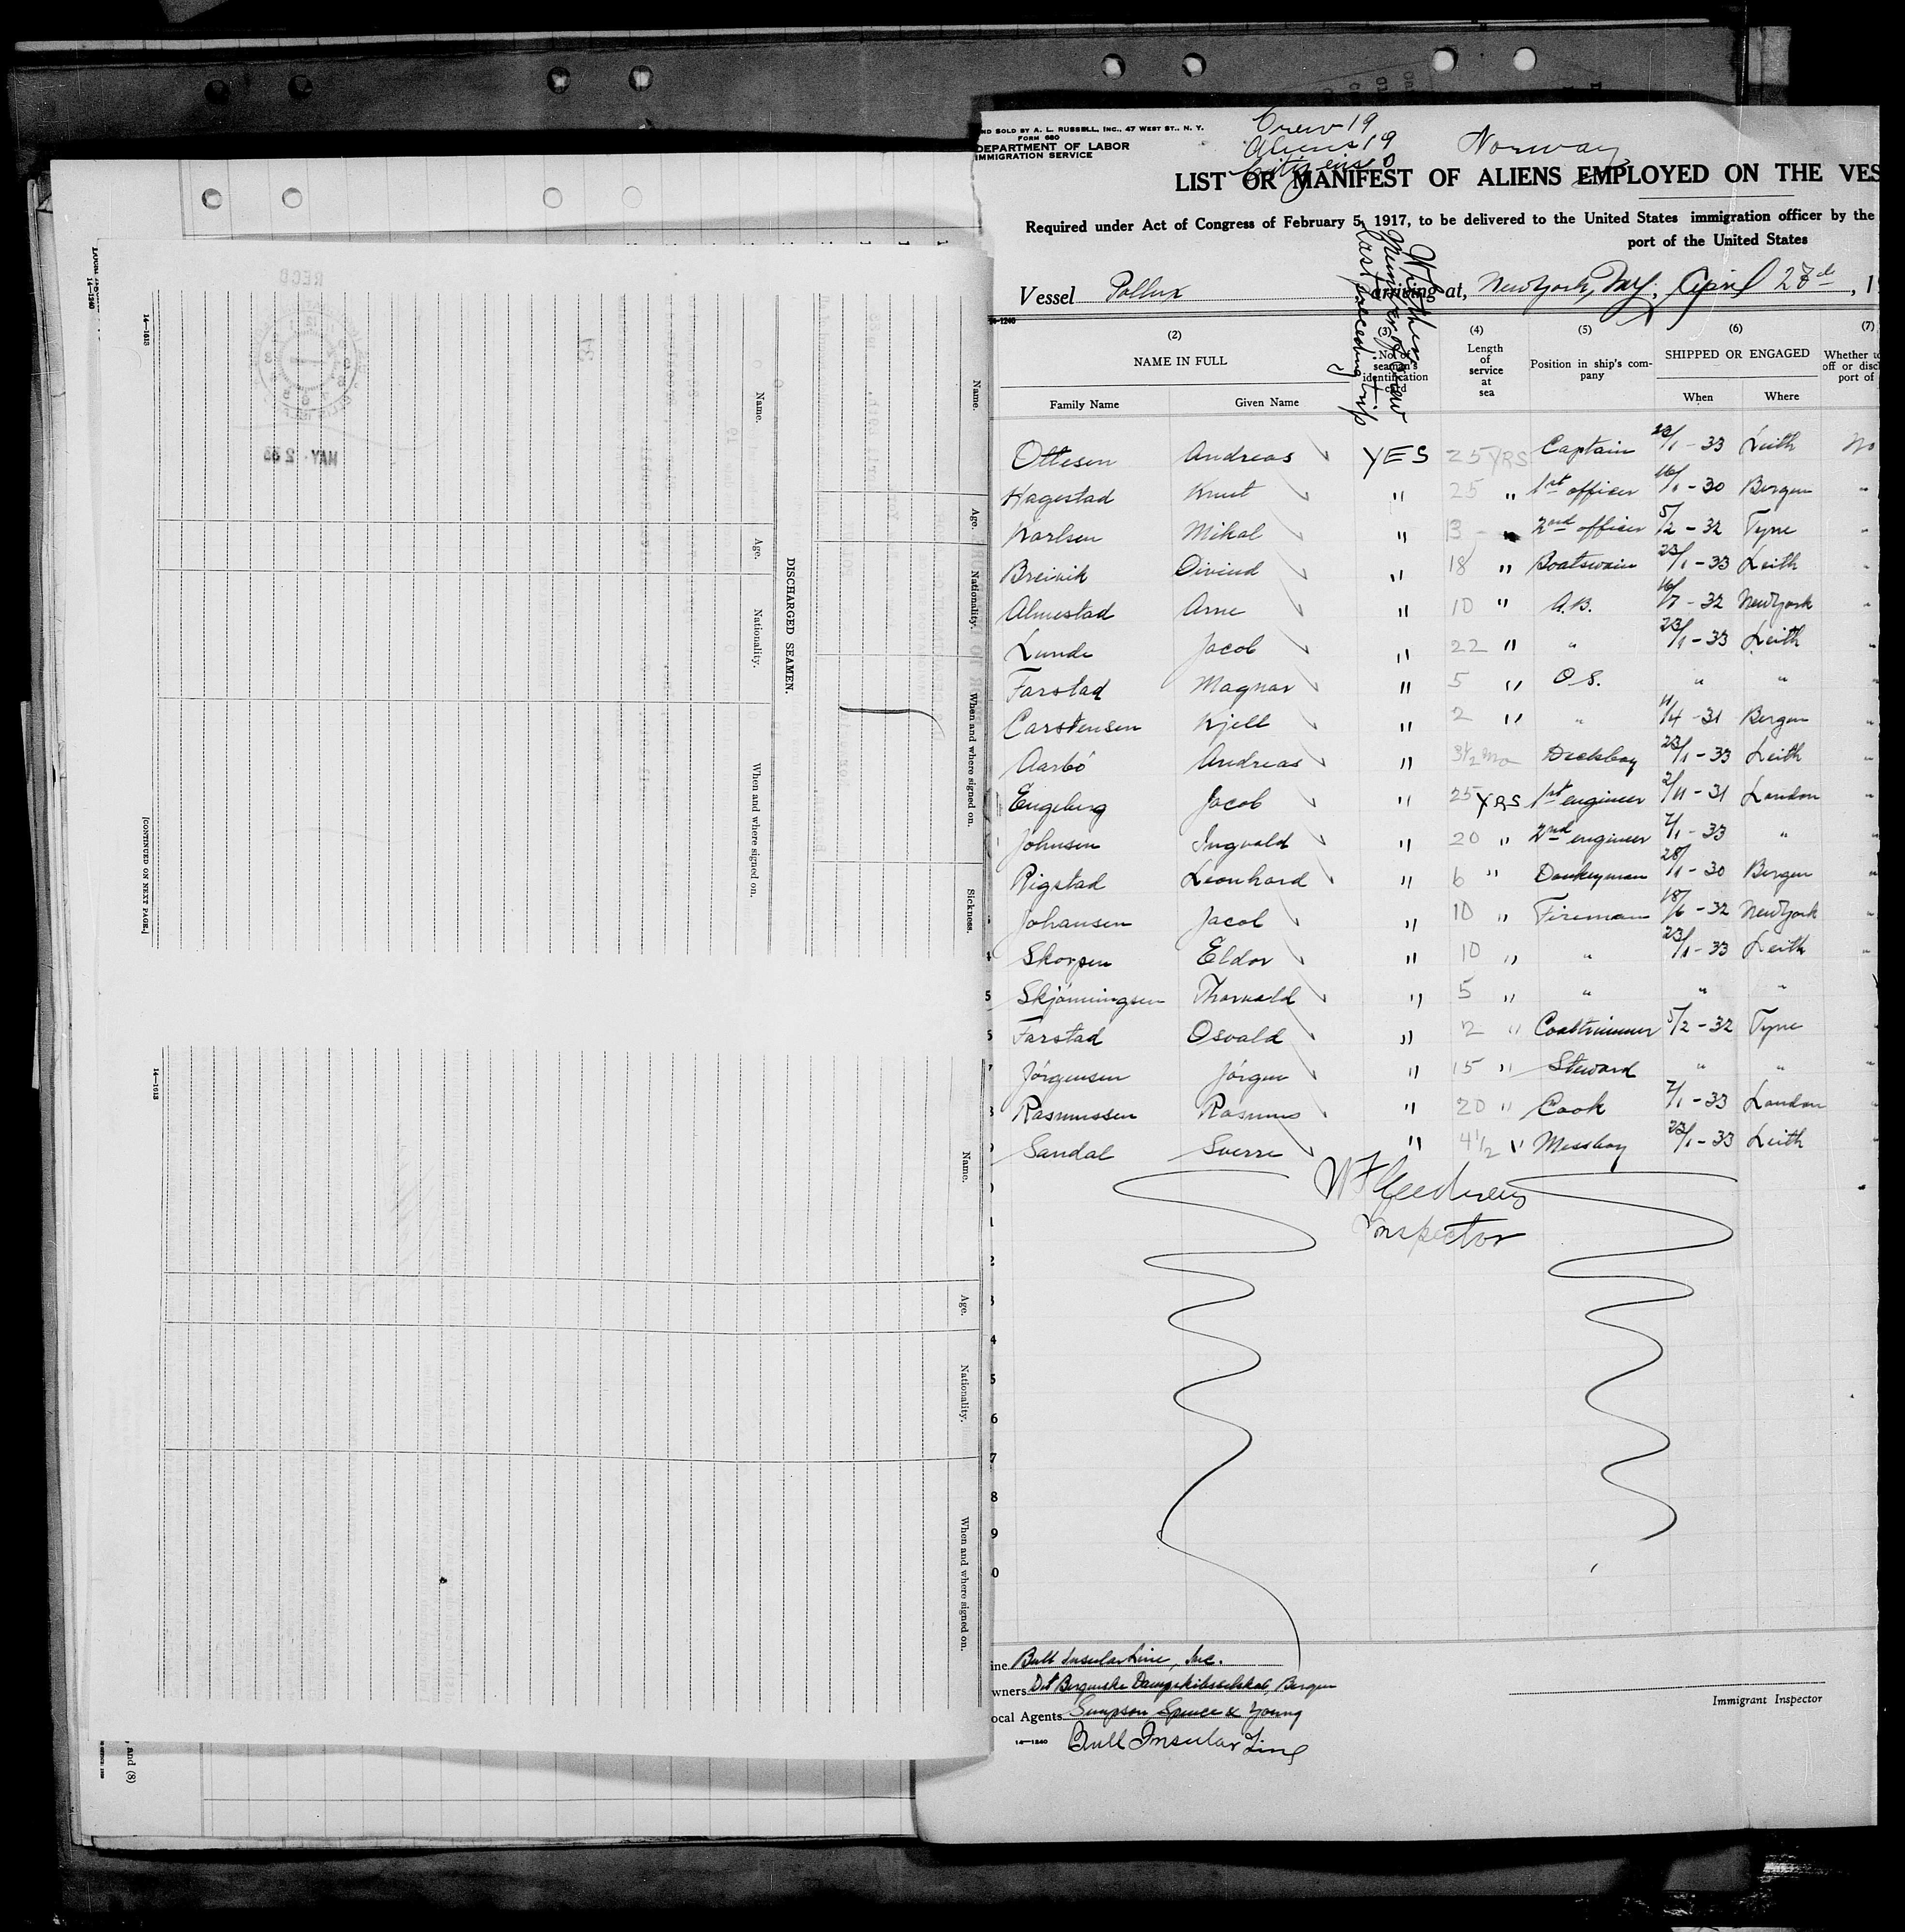 ND SOLD BY A. L. RUSSELL, INC., 47 WEST ST., N. Y.
FORM 680
DEPARTMENT OF LABOR
IMMIGRATION SERVICE
Crew 19
Aliens 19
Citizens 0
Norway
LIST OR MANIFEST OF ALIENS EMPLOYED ON THE VES
Required under Act of Congress of February 5, 1917, to be delivered to the United States immigration officer by the
port of the United States
Vessel Pollux arriving at, New York, N.Y., April 28d, 1
Whether member of crew last preceding trip
14-1240
(2) (3) (4) (5) (6) (7)
NAME IN FULL
No. of seaman's identification card
Length of service at sea
Position in ship's company
SHIPPED OR ENGAGED
Family Name Given Name When Where
Ottesen Andreas YES 25 YRS Captain 23/1-33 Leith No
Hagestad Knut " 25 " 1st officer 16/1-30 Bergen "
Karlsen Mikal " 13 " 2nd officer 5/2-32 Tyne "
Breivik Oivind " 18 " Boatswain 23/1-33 Leith "
Almestad Arne " 10 " A.B. 16/7-32 New York "
Lunde Jacob " 22 " " 23/1-33 Leith "
Farstad Magnar " 5 " O.S. " " "
Carstensen Kjell " 2 " " 11/4-31 Bergen "
Aarbó Andreas " 3 1/2 mo Decksboy 23/1-33 Leith "
Engeberg Jacob " 25 YRS 1st engineer 2/11-31 London "
Johnsen Ingvald " 20 " 2nd engineer 7/1-33 " "
Rigstad Leonhard " 6 " Donkeyman 28/1-30 Bergen "
Johansen Jacob " 10 " Fireman 18/6-32 New York "
Skorpen Eldor " 10 " " 23/1-33 Leith "
Skjönningsen Thorvald " 5 " " " " "
Farstad Osvald " 2 " Coaltrimmer 5/2-32 Tyne "
Jörgensen Jörgen " 15 " Steward " " "
Rasmussen Rasmus " 20 " Cook 7/1-33 London "
Sandal Sverre " 4 1/2 " Messboy 23/1-33 Leith "
Inspector
ine Bull Insular Line, Inc.
wners Det Bergenske Dampskibsselskab, Bergen
ocal Agents Simpson Spence & Young
14-1240 Bull Insular Line
Immigrant Inspector
Name. Age. Nationality. When and where signed on. Sickness.
DISCHARGED SEAMEN.
Name. Age. Nationality. When and where signed on.
Name. Age. Nationality. When and where signed on.
[CONTINUED ON NEXT PAGE.]
14-1613
14-1613
14-1240
RECD
MAY 2
and (8)